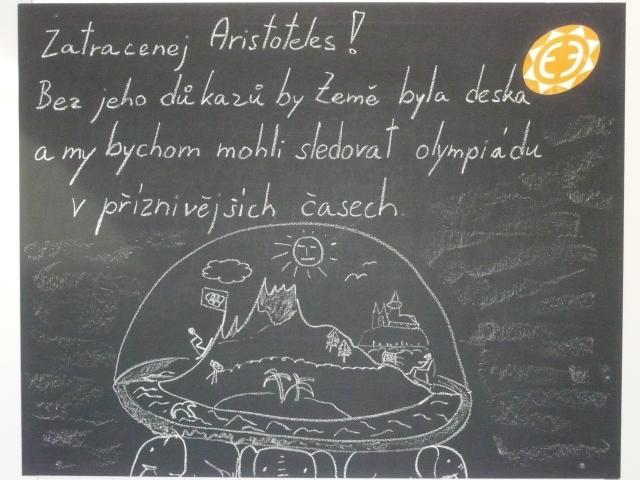 Zatracenej Aristoteles!
Bez jeho důkazů by Země byla deska
a my bychom mohli sledovat olympiádu
v příznivějších časech